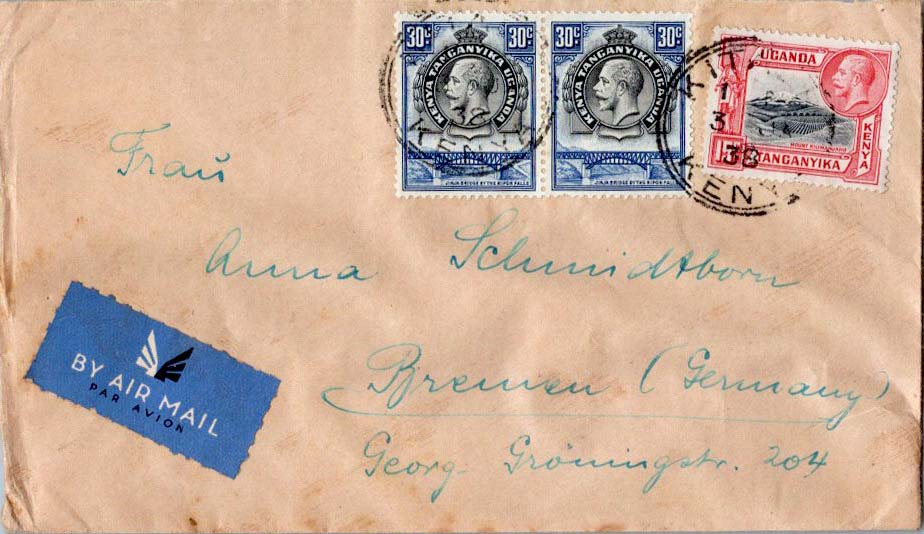 30c 30c
KENYA TANGANYIKA UGANDA
JINJA BRIDGE BY THE RIPON FALLS
KENYA TANGANYIKA UGANDA
JINJA BRIDGE BY THE RIPON FALLS
36
KENYA
UGANDA
KENYA
MOUNT KILIMANJARO
TANGANYIKA
KIT
1
38
KEN
Frau
Anna Schmidtborn
Bremen (Germany)
Georg-Gröningstr. 204
BY AIR MAIL
PAR AVION